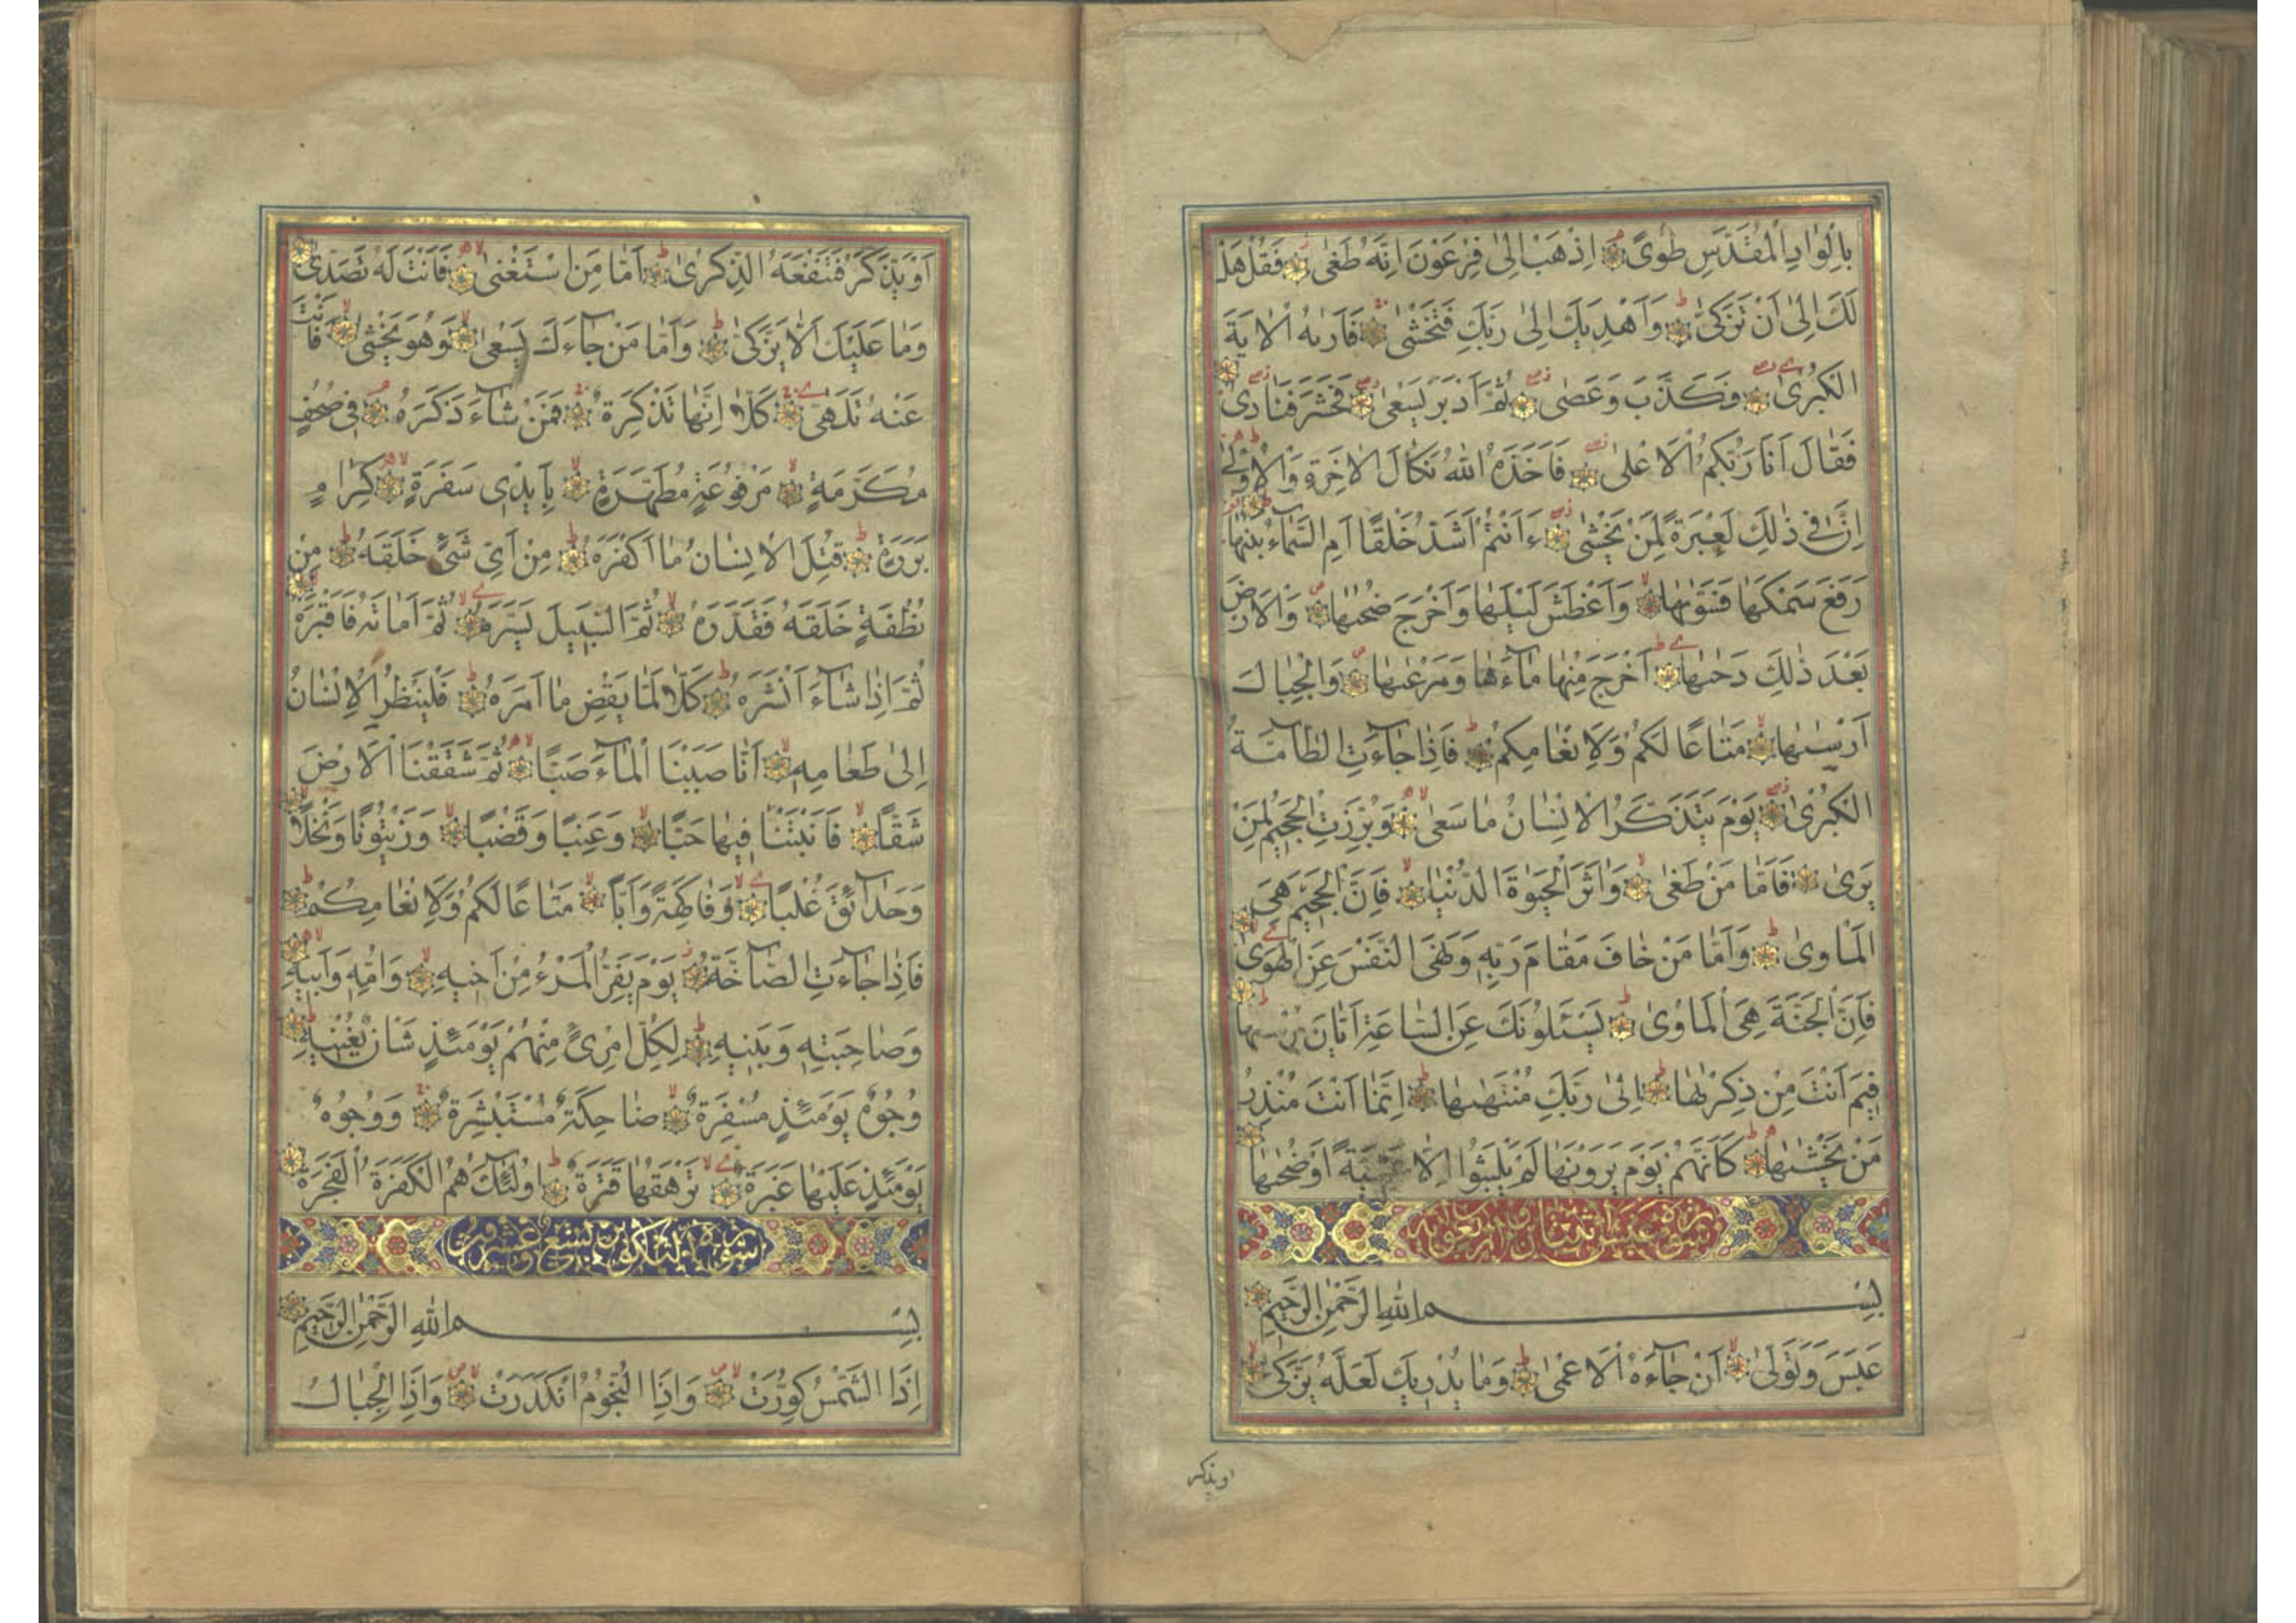 بِالْوَادِ الْمُقَدَّسِ طُوًى اِذْهَبْ اِلٰى فِرْعَوْنَ اِنَّهُ طَغٰى فَقُلْ هَلْ
لَكَ اِلٰٓى اَنْ تَزَكّٰى وَاَهْدِيَكَ اِلٰى رَبِّكَ فَتَخْشٰى فَاَرٰيهُ الْاٰيَةَ
الْكُبْرٰى فَكَذَّبَ وَعَصٰى ثُمَّ اَدْبَرَ يَسْعٰى فَحَشَرَ فَنَادٰى
فَقَالَ اَنَا رَبُّكُمُ الْاَعْلٰى فَاَخَذَهُ اللّٰهُ نَكَالَ الْاٰخِرَةِ وَالْاُوْلٰى
اِنَّ فِى ذٰلِكَ لَعِبْرَةً لِمَنْ يَخْشٰى ءَاَنْتُمْ اَشَدُّ خَلْقًا اَمِ السَّمَاءُ بَنٰيهَا
رَفَعَ سَمْكَهَا فَسَوّٰيهَا وَاَغْطَشَ لَيْلَهَا وَاَخْرَجَ ضُحٰيهَا وَالْاَرْضَ
بَعْدَ ذٰلِكَ دَحٰيهَا اَخْرَجَ مِنْهَا مَآءَهَا وَمَرْعٰيهَا وَالْجِبَالَ
اَرْسٰيهَا مَتَاعًا لَكُمْ وَلِاَنْعَامِكُمْ فَاِذَا جَآءَتِ الطَّآمَّةُ
الْكُبْرٰى يَوْمَ يَتَذَكَّرُ الْاِنْسَانُ مَا سَعٰى وَبُرِّزَتِ الْجَحِيمُ لِمَنْ
يَرٰى فَاَمَّا مَنْ طَغٰى وَاٰثَرَ الْحَيٰوةَ الدُّنْيَا فَاِنَّ الْجَحِيمَ هِىَ
الْمَاْوٰى وَاَمَّا مَنْ خَافَ مَقَامَ رَبِّهِ وَنَهَى النَّفْسَ عَنِ الْهَوٰى
فَاِنَّ الْجَنَّةَ هِىَ الْمَاْوٰى يَسْئَلُونَكَ عَنِ السَّاعَةِ اَيَّانَ مُرْسٰيهَا
فِيمَ اَنْتَ مِنْ ذِكْرٰيهَا اِلٰى رَبِّكَ مُنْتَهٰيهَا اِنَّمَا اَنْتَ مُنْذِرُ
مَنْ يَخْشٰيهَا كَاَنَّهُمْ يَوْمَ يَرَوْنَهَا لَمْ يَلْبَثُوا اِلَّا عَشِيَّةً اَوْ ضُحٰيهَا
سورة عبس اثنتان واربعون اية
بِسْمِ اللّٰهِ الرَّحْمٰنِ الرَّحِيمِ
عَبَسَ وَتَوَلّٰى اَنْ جَآءَهُ الْاَعْمٰى وَمَا يُدْرِيكَ لَعَلَّهُ يَزَّكّٰى
او يذكر
اَوْ يَذَّكَّرُ فَتَنْفَعَهُ الذِّكْرٰى اَمَّا مَنِ اسْتَغْنٰى فَاَنْتَ لَهُ تَصَدّٰى
وَمَا عَلَيْكَ اَلَّا يَزَّكّٰى وَاَمَّا مَنْ جَآءَكَ يَسْعٰى وَهُوَ يَخْشٰى فَاَنْتَ
عَنْهُ تَلَهّٰى كَلَّا اِنَّهَا تَذْكِرَةٌ فَمَنْ شَآءَ ذَكَرَهُ فِى صُحُفٍ
مُكَرَّمَةٍ مَرْفُوعَةٍ مُطَهَّرَةٍ بِاَيْدِى سَفَرَةٍ كِرَامٍ
بَرَرَةٍ قُتِلَ الْاِنْسَانُ مَا اَكْفَرَهُ مِنْ اَىِّ شَىْءٍ خَلَقَهُ مِنْ
نُطْفَةٍ خَلَقَهُ فَقَدَّرَهُ ثُمَّ السَّبِيلَ يَسَّرَهُ ثُمَّ اَمَاتَهُ فَاَقْبَرَهُ
ثُمَّ اِذَا شَآءَ اَنْشَرَهُ كَلَّا لَمَّا يَقْضِ مَا اَمَرَهُ فَلْيَنْظُرِ الْاِنْسَانُ
اِلٰى طَعَامِهِ اَنَّا صَبَبْنَا الْمَآءَ صَبًّا ثُمَّ شَقَقْنَا الْاَرْضَ
شَقًّا فَاَنْبَتْنَا فِيهَا حَبًّا وَعِنَبًا وَقَضْبًا وَزَيْتُونًا وَنَخْلًا
وَحَدَآئِقَ غُلْبًا وَفَاكِهَةً وَاَبًّا مَتَاعًا لَكُمْ وَلِاَنْعَامِكُمْ
فَاِذَا جَآءَتِ الصَّآخَّةُ يَوْمَ يَفِرُّ الْمَرْءُ مِنْ اَخِيهِ وَاُمِّهِ وَاَبِيهِ
وَصَاحِبَتِهِ وَبَنِيهِ لِكُلِّ امْرِئٍ مِنْهُمْ يَوْمَئِذٍ شَاْنٌ يُغْنِيهِ
وُجُوهٌ يَوْمَئِذٍ مُسْفِرَةٌ ضَاحِكَةٌ مُسْتَبْشِرَةٌ وَوُجُوهٌ
يَوْمَئِذٍ عَلَيْهَا غَبَرَةٌ تَرْهَقُهَا قَتَرَةٌ اُولٰٓئِكَ هُمُ الْكَفَرَةُ الْفَجَرَةُ
سورة التكوير تسع وعشرون
بِسْمِ اللّٰهِ الرَّحْمٰنِ الرَّحِيمِ
اِذَا الشَّمْسُ كُوِّرَتْ وَاِذَا النُّجُومُ انْكَدَرَتْ وَاِذَا الْجِبَالُ